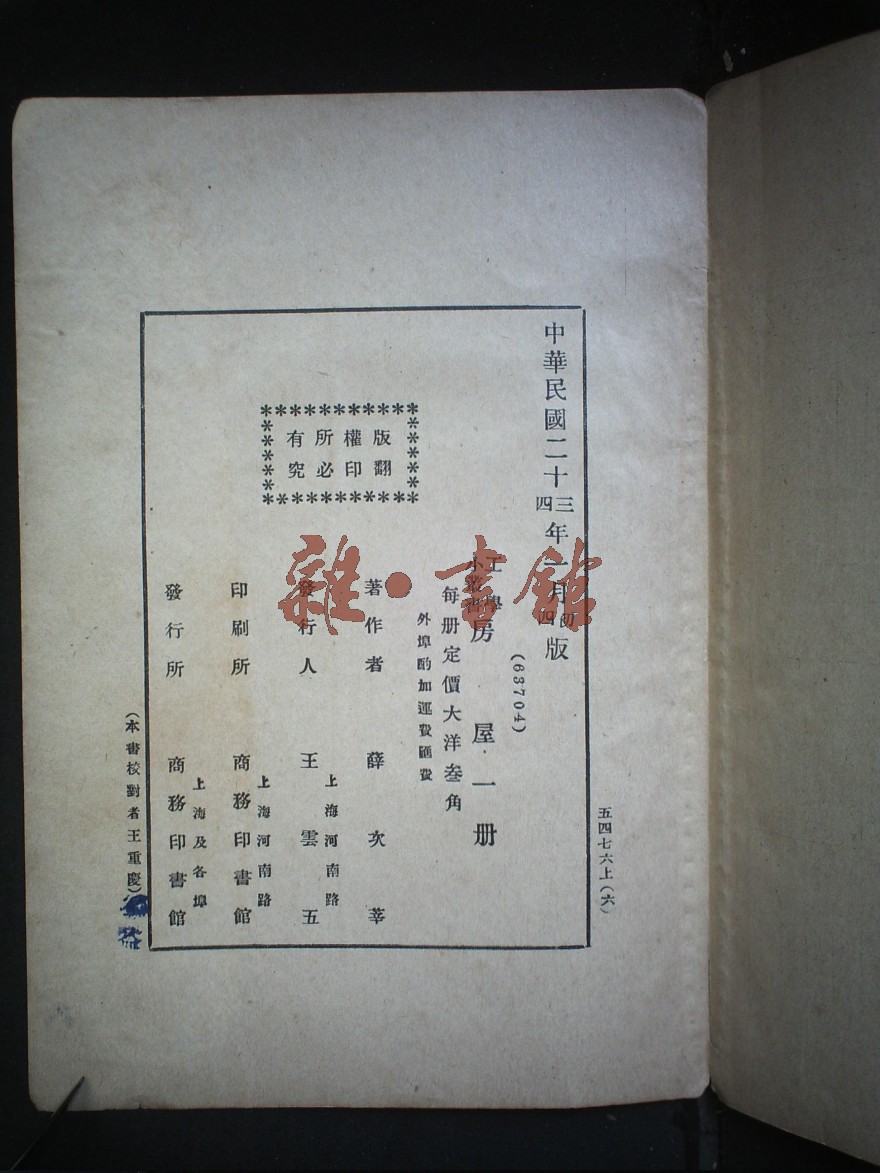 五四七六上(六)
中華民國二十三年一月初版
四 四
(63704)
工學小叢書 房屋一册
每册定價大洋叁角
外埠酌加運費匯費
版權所有
翻印必究
著作者 薛次莘
上海河南路
發行人 王雲五
上海河南路
印刷所 商務印書館
上海及各埠
發行所 商務印書館
(本書校對者王重慶)
雜·書館